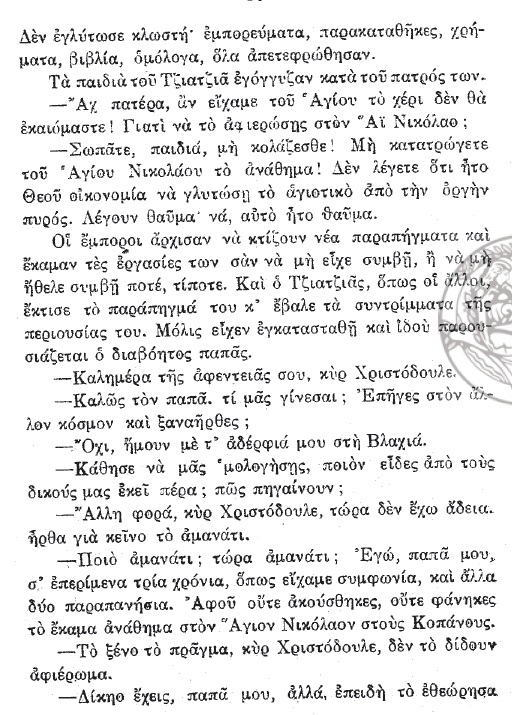 Δὲν ἐγλύτωσε κλωστή· ἐμπορεύματα, παρακαταθῆκες, χρή-
ματα, βιβλία, ὁμόλογα, ὅλα ἀπετεφρώθησαν.
Τὰ παιδιὰ τοῦ Τζιατζιᾶ ἐγόγγυζαν κατὰ τοῦ πατρός των.
—Ἂχ πατέρα, ἂν εἴχαμε τοῦ Ἁγίου τὸ χέρι δὲν θὰ
ἐκαιόμαστε! Γιατὶ νὰ τὸ ἀφιερώσῃς στὸν Ἅϊ Νικόλαο;
—Σωπᾶτε, παιδιά, μὴ κολάζεσθε! Μὴ κατατρώγετε
τοῦ Ἁγίου Νικολάου τὸ ἀνάθημα! Δὲν λέγετε ὅτι ἦτο
Θεοῦ οἰκονομία νὰ γλυτώσῃ τὸ ἁγιοτικὸ ἀπὸ τὴν ὀργὴν
πυρός. Λέγουν θαῦμα· νά, αὐτὸ ἦτο θαῦμα.
Οἱ ἔμποροι ἄρχισαν νὰ κτίζουν νέα παραπήγματα καὶ
ἔκαμαν τὲς ἐργασίες των σὰν νὰ μὴ εἶχε συμβῇ, ἢ νὰ μὴ
ἤθελε συμβῇ ποτέ, τίποτε. Καὶ ὁ Τζιατζιᾶς, ὅπως οἱ ἄλλοι,
ἔκτισε τὸ παράπηγμά του κ' ἔβαλε τὰ συντρίμματα τῆς
περιουσίας του. Μόλις εἶχεν ἐγκατασταθῆ καὶ ἰδοὺ παρου-
σιάζεται ὁ διαβόητος παπᾶς.
—Καλημέρα τῆς ἀφεντειᾶς σου, κὺρ Χριστόδουλε.
—Καλῶς τὸν παπᾶ. τί μᾶς γίνεσαι; Ἐπῆγες στὸν ἄλ-
λον κόσμον καὶ ξαναῆρθες;
—Ὄχι, ἤμουν μὲ τ' ἀδέρφιά μου στὴ Βλαχιά.
—Κάθησε νὰ μᾶς ᾿μολογήσῃς, ποιὸν εἶδες ἀπὸ τοὺς
δικούς μας ἐκεῖ πέρα; πῶς πηγαίνουν;
—Ἄλλη φορά, κὺρ Χριστόδουλε, τώρα δὲν ἔχω ἄδεια.
ἦρθα γιὰ κεῖνο τὸ ἀμανάτι.
—Ποιὸ ἀμανάτι; τώρα ἀμανάτι; Ἐγώ, παπᾶ μου,
σ' ἐπερίμενα τρία χρόνια, ὅπως εἴχαμε συμφωνία, καὶ ἄλλα
δύο παραπανήσια. Ἀφοῦ οὔτε ἀκούσθηκες, οὔτε φάνηκες
τὸ ἔκαμα ἀνάθημα στὸν Ἅγιον Νικόλαον στοὺς Κοπάνους.
—Τὸ ξένο τὸ πρᾶγμα, κὺρ Χριστόδουλε, δὲν τὸ δίδουν
ἀφιέρωμα.
—Δίκηο ἔχεις, παπᾶ μου, ἀλλά, ἐπειδὴ τὸ ἐθεώρησα